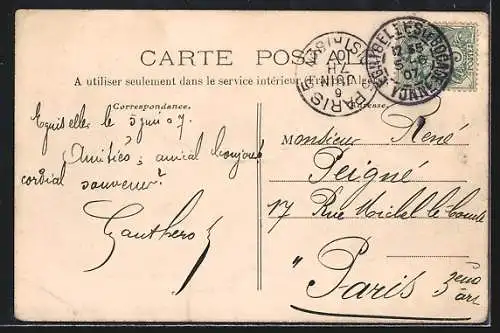 CARTE POSTALE
A utiliser seulement dans le service intérieur
Correspondance.
5 juin 07
Amitiés, amical bonjour
cordial souvenir
Gauthero
Adresse.
Monsieur René
Peigné
17 Rue Michel le Comte
" Paris 3eme
arr
PARIS
6 JUIN
07
YONNE